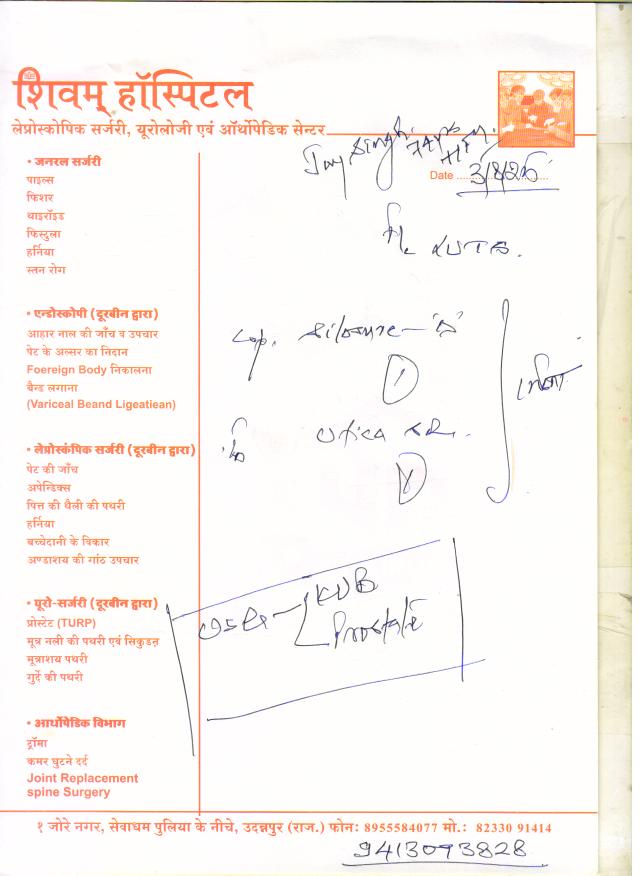 शिवम् हॉस्पिटल
लेप्रोस्कोपिक सर्जरी, यूरोलोजी एवं ऑर्थोपेडिक सेन्टर
Singh
Date 3/8/25
• जनरल सर्जरी
पाइल्स
फिशर
थाइरॉइड
फिस्टुला
हर्निया
स्तन रोग
LUTS.
• एन्डोस्कोपी (दूरबीन द्वारा)
आहार नाल की जाँच व उपचार
पेट के अल्सर का निदान
Foereign Body निकालना
बैन्ड लगाना
(Variceal Beand Ligeatiean)
Cap. - 'D'
• लेप्रोस्कंपिक सर्जरी (दूरबीन द्वारा)
पेट की जाँच
अपेन्डिक्स
पित्त की थैली की पथरी
हर्निया
बच्चेदानी के विकार
अण्डाशय की गांठ उपचार
• यूरो-सर्जरी (दूरबीन द्वारा)
प्रोस्टेट (TURP)
मूत्र नली की पथरी एवं सिकुडन
मूत्राशय पथरी
गुर्दे की पथरी
KUB
Prostate
• आर्थोपेडिक विभाग
ट्रॉमा
कमर घुटने दर्द
Joint Replacement
spine Surgery
१ जोरे नगर, सेवाधम पुलिया के नीचे, उदन्नपुर (राज.) फोनः 8955584077 मो.: 82330 91414
9413093828